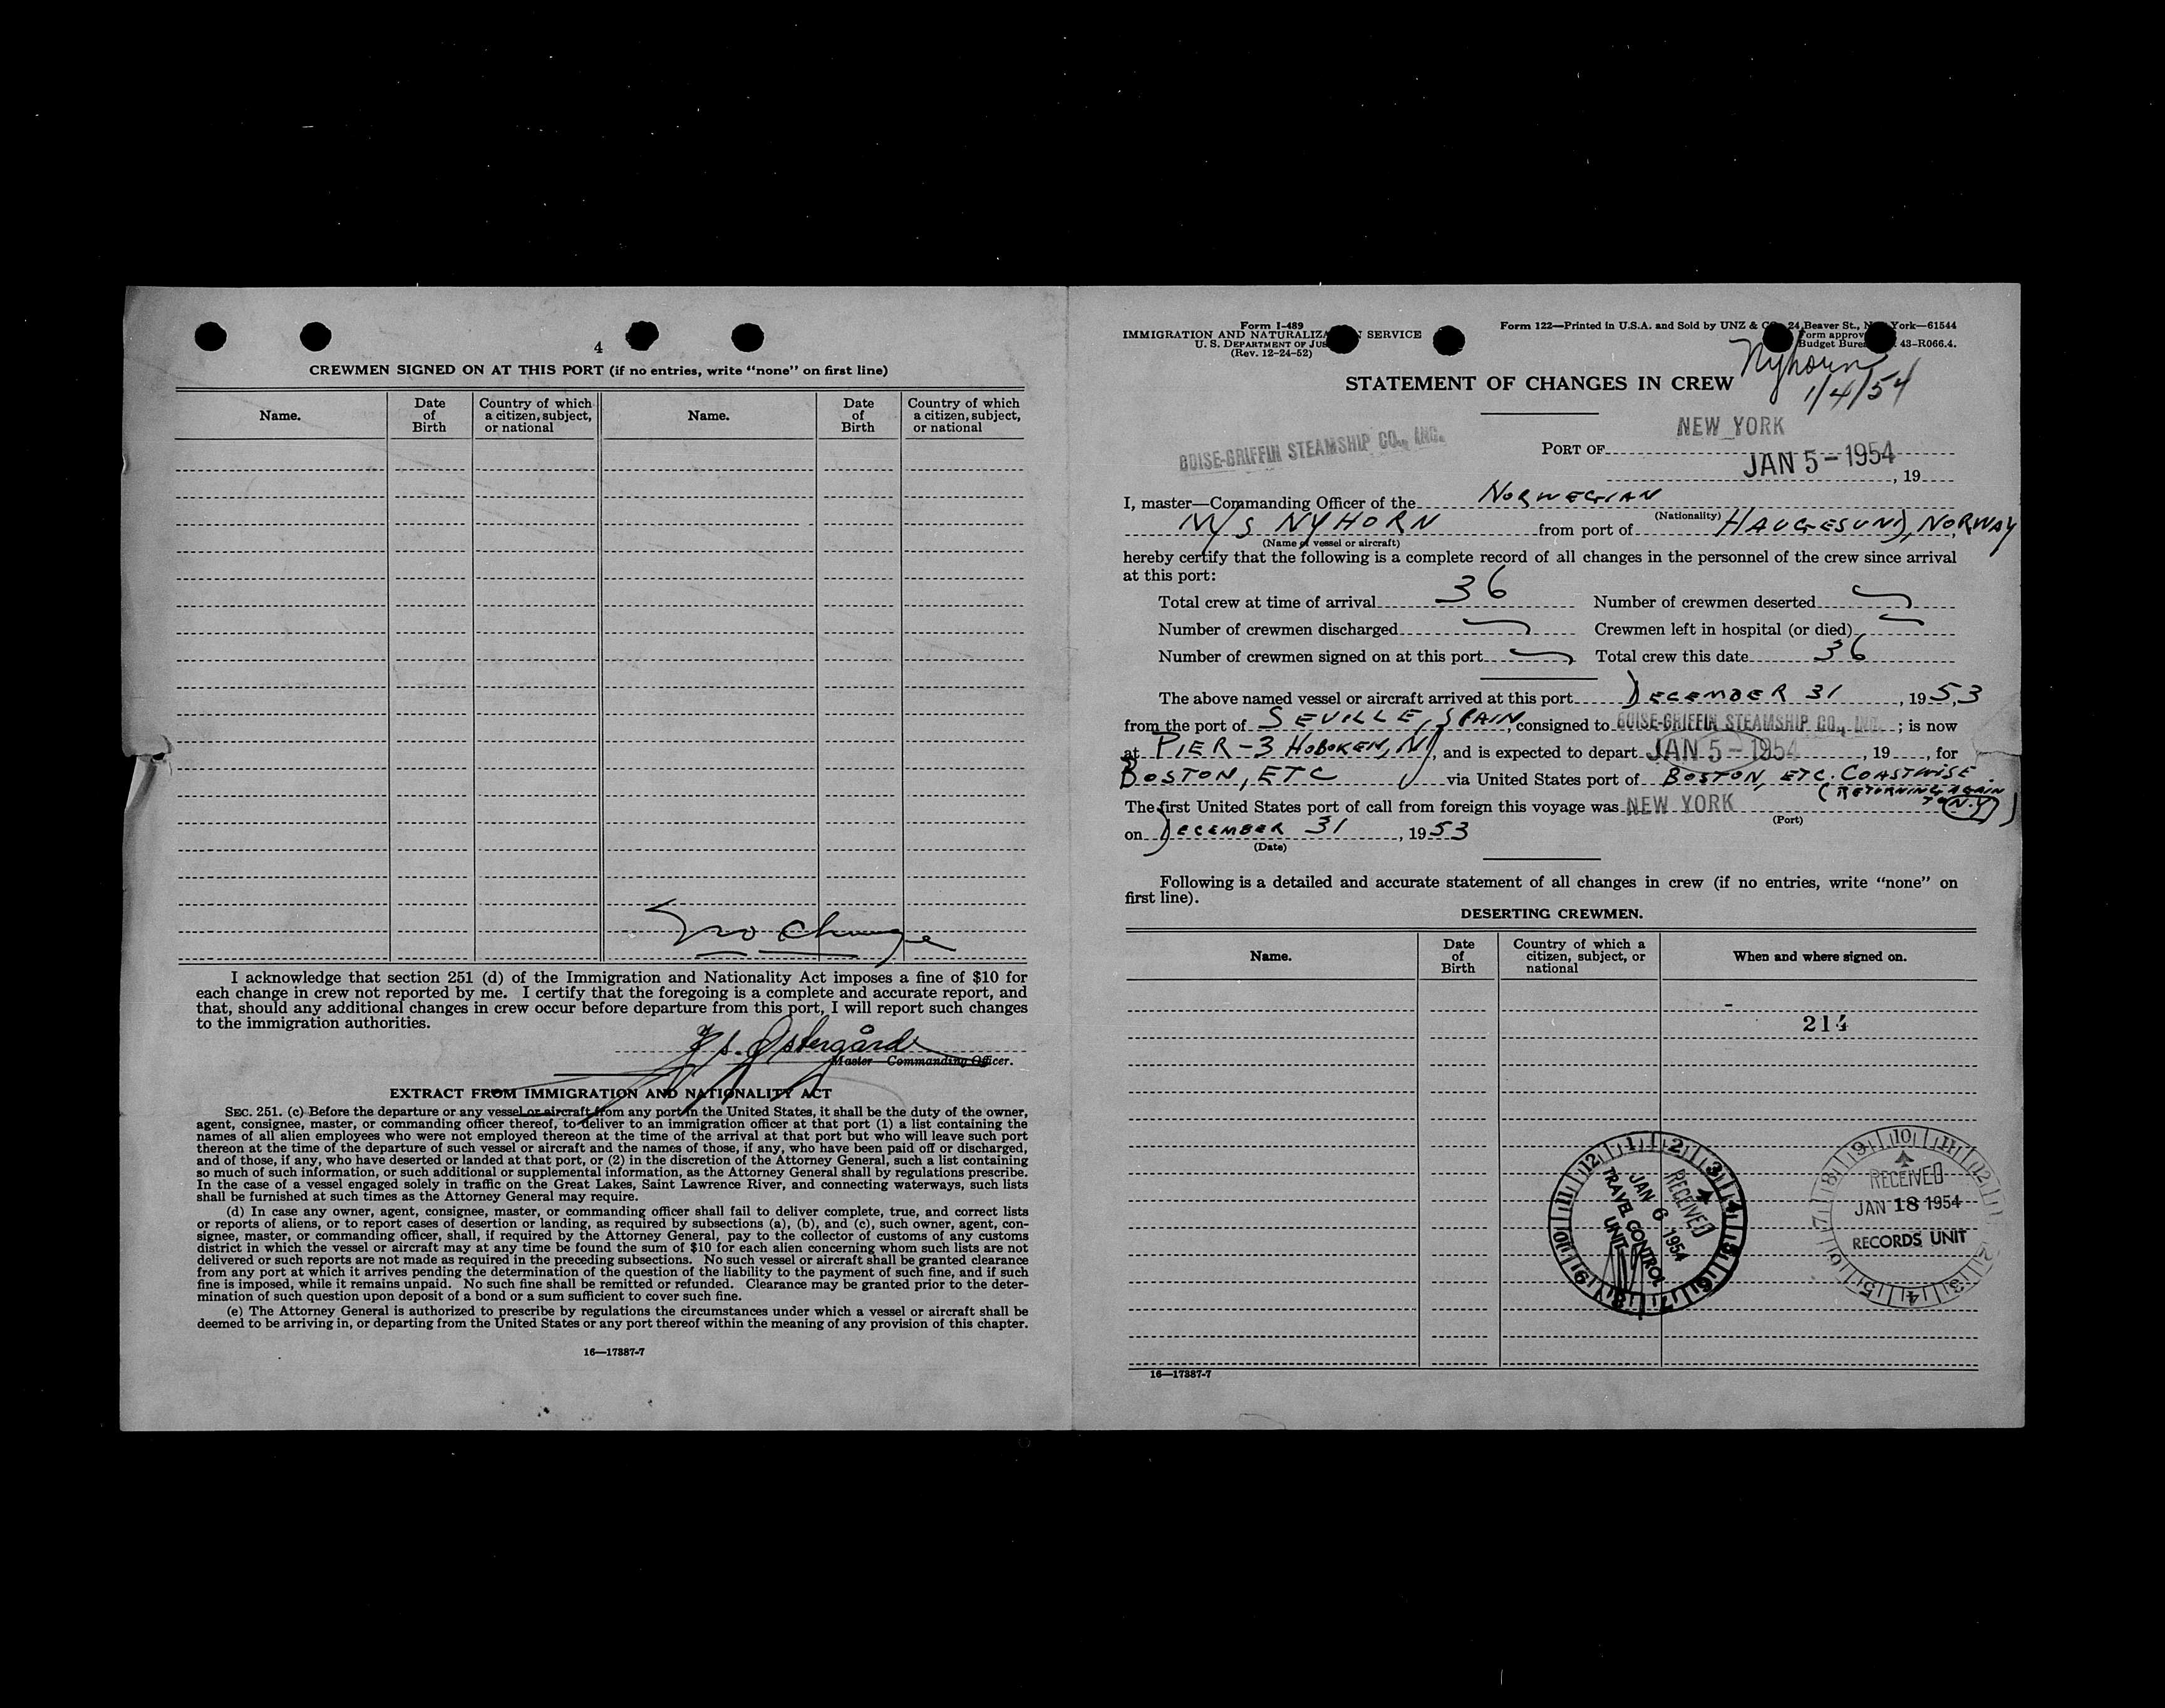 4
CREWMEN SIGNED ON AT THIS PORT (if no entries, write "none" on first line)
Name. Date of Birth Country of which a citizen, subject, or national Name. Date of Birth Country of which a citizen, subject, or national
no change
I acknowledge that section 251 (d) of the Immigration and Nationality Act imposes a fine of $10 for
each change in crew not reported by me. I certify that the foregoing is a complete and accurate report, and
that, should any additional changes in crew occur before departure from this port, I will report such changes
to the immigration authorities.
Østergård
Master—Commanding Officer.
EXTRACT FROM IMMIGRATION AND NATIONALITY ACT
SEC. 251. (c) Before the departure or any vessel or aircraft from any port in the United States, it shall be the duty of the owner,
agent, consignee, master, or commanding officer thereof, to deliver to an immigration officer at that port (1) a list containing the
names of all alien employees who were not employed thereon at the time of the arrival at that port but who will leave such port
thereon at the time of the departure of such vessel or aircraft and the names of those, if any, who have been paid off or discharged,
and of those, if any, who have deserted or landed at that port, or (2) in the discretion of the Attorney General, such a list containing
so much of such information, or such additional or supplemental information, as the Attorney General shall by regulations prescribe.
In the case of a vessel engaged solely in traffic on the Great Lakes, Saint Lawrence River, and connecting waterways, such lists
shall be furnished at such times as the Attorney General may require.
(d) In case any owner, agent, consignee, master, or commanding officer shall fail to deliver complete, true, and correct lists
or reports of aliens, or to report cases of desertion or landing, as required by subsections (a), (b), and (c), such owner, agent, con-
signee, master, or commanding officer, shall, if required by the Attorney General, pay to the collector of customs of any customs
district in which the vessel or aircraft may at any time be found the sum of $10 for each alien concerning whom such lists are not
delivered or such reports are not made as required in the preceding subsections. No such vessel or aircraft shall be granted clearance
from any port at which it arrives pending the determination of the question of the liability to the payment of such fine, and if such
fine is imposed, while it remains unpaid. No such fine shall be remitted or refunded. Clearance may be granted prior to the deter-
mination of such question upon deposit of a bond or a sum sufficient to cover such fine.
(e) The Attorney General is authorized to prescribe by regulations the circumstances under which a vessel or aircraft shall be
deemed to be arriving in, or departing from the United States or any port thereof within the meaning of any provision of this chapter.
16—17387-7
Form I-489
IMMIGRATION AND NATURALIZA N SERVICE
U. S. DEPARTMENT OF JUS
(Rev. 12-24-52)
Form 122—Printed in U.S.A. and Sold by UNZ & C 24 Beaver St., N York—61544
Form approv
Budget Burea 43-R066.4.
Nyhorn
1/4/54
STATEMENT OF CHANGES IN CREW
BOISE-GRIFFIN STEAMSHIP CO., INC.
PORT OF NEW YORK
JAN 5 - 1954, 19
I, master—Commanding Officer of the NORWEGIAN
(Nationality)
M/S NYHORN from port of HAUGESUND, NORWAY
(Name of vessel or aircraft)
hereby certify that the following is a complete record of all changes in the personnel of the crew since arrival
at this port:
Total crew at time of arrival 36 Number of crewmen deserted
Number of crewmen discharged Crewmen left in hospital (or died)
Number of crewmen signed on at this port Total crew this date 36
The above named vessel or aircraft arrived at this port DECEMBER 31, 1953
from the port of SEVILLE, SPAIN, consigned to BOISE-GRIFFIN STEAMSHIP CO., INC. ; is now
at PIER-3 HOBOKEN, NJ, and is expected to depart JAN 5 - 1954, 19, for
BOSTON, ETC via United States port of BOSTON, ETC. COASTWISE.
(RETURNING AGAIN TO N.Y)
The first United States port of call from foreign this voyage was NEW YORK
(Port)
on DECEMBER 31, 1953
(Date)
Following is a detailed and accurate statement of all changes in crew (if no entries, write "none" on
first line).
DESERTING CREWMEN.
Name. Date of Birth Country of which a citizen, subject, or national When and where signed on.
214
RECEIVED
JAN 6 1954
TRAVEL CONTROL
UNIT
RECEIVED
JAN 18 1954
RECORDS UNIT
16—17387-7